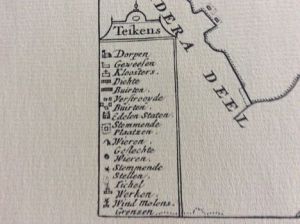 DERA DEEL
Teikens
Dorpen
Geweesen
Kloosters.
Dichte
Buirten.
Verstrooyde
Buirten.
Edelen Staten.
Stemmende
Plaatzen.
Wieren.
Geslechte
Wieren.
Stemmende
Stellen.
Tichel
Werken.
Wind Molens.
Grensen